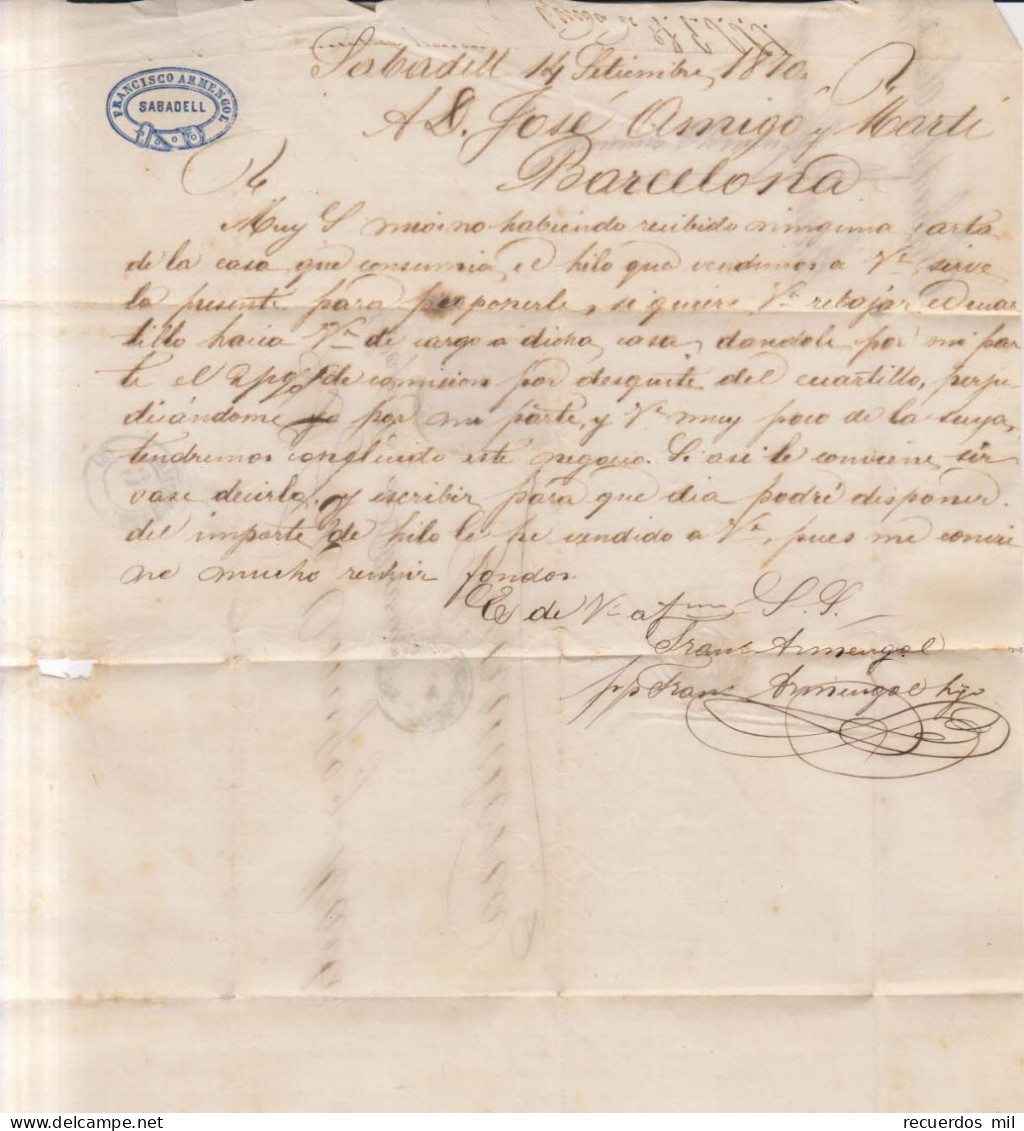 Sabadell 14 Setiembre 1870.
FRANCISCO ARMENGOL
SABADELL
A D. José Amigó y Martí
Barcelona
Muy S. mio: no habiendo recibido ninguna carta
de la casa que consumia el hilo que vendimos a V. sirve
la presente para proponerle, si quiere V. rebajar el cuar
tillo hacia V. de cargo a dicha casa, dandole por mi par
te el 2 p% de comicion por desquite del cuartillo, perju-
dicándome yo por mi parte, y V. muy poco de la suya,
tendremos concluido este negocio. Si asi le conviene, sir
vase decirlo, y escribir para que dia podré disponer
del importe de hilo le he vendido a V., pues me convie
ne mucho reunir fondos.
Es de V. a fmo S. S.
Franco Armengol
pp Franco Armengol hijo
recuerdos mil